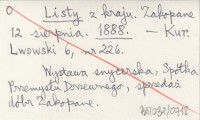 O Listy z kraju. Zakopane
12 sierpnia. 1888. — Kur.
Lwowski 6, nr 226.
Wystawa snycerska, Spółka
Przemysłu Drzewnego, sprzedaż
dóbr Zakopane.